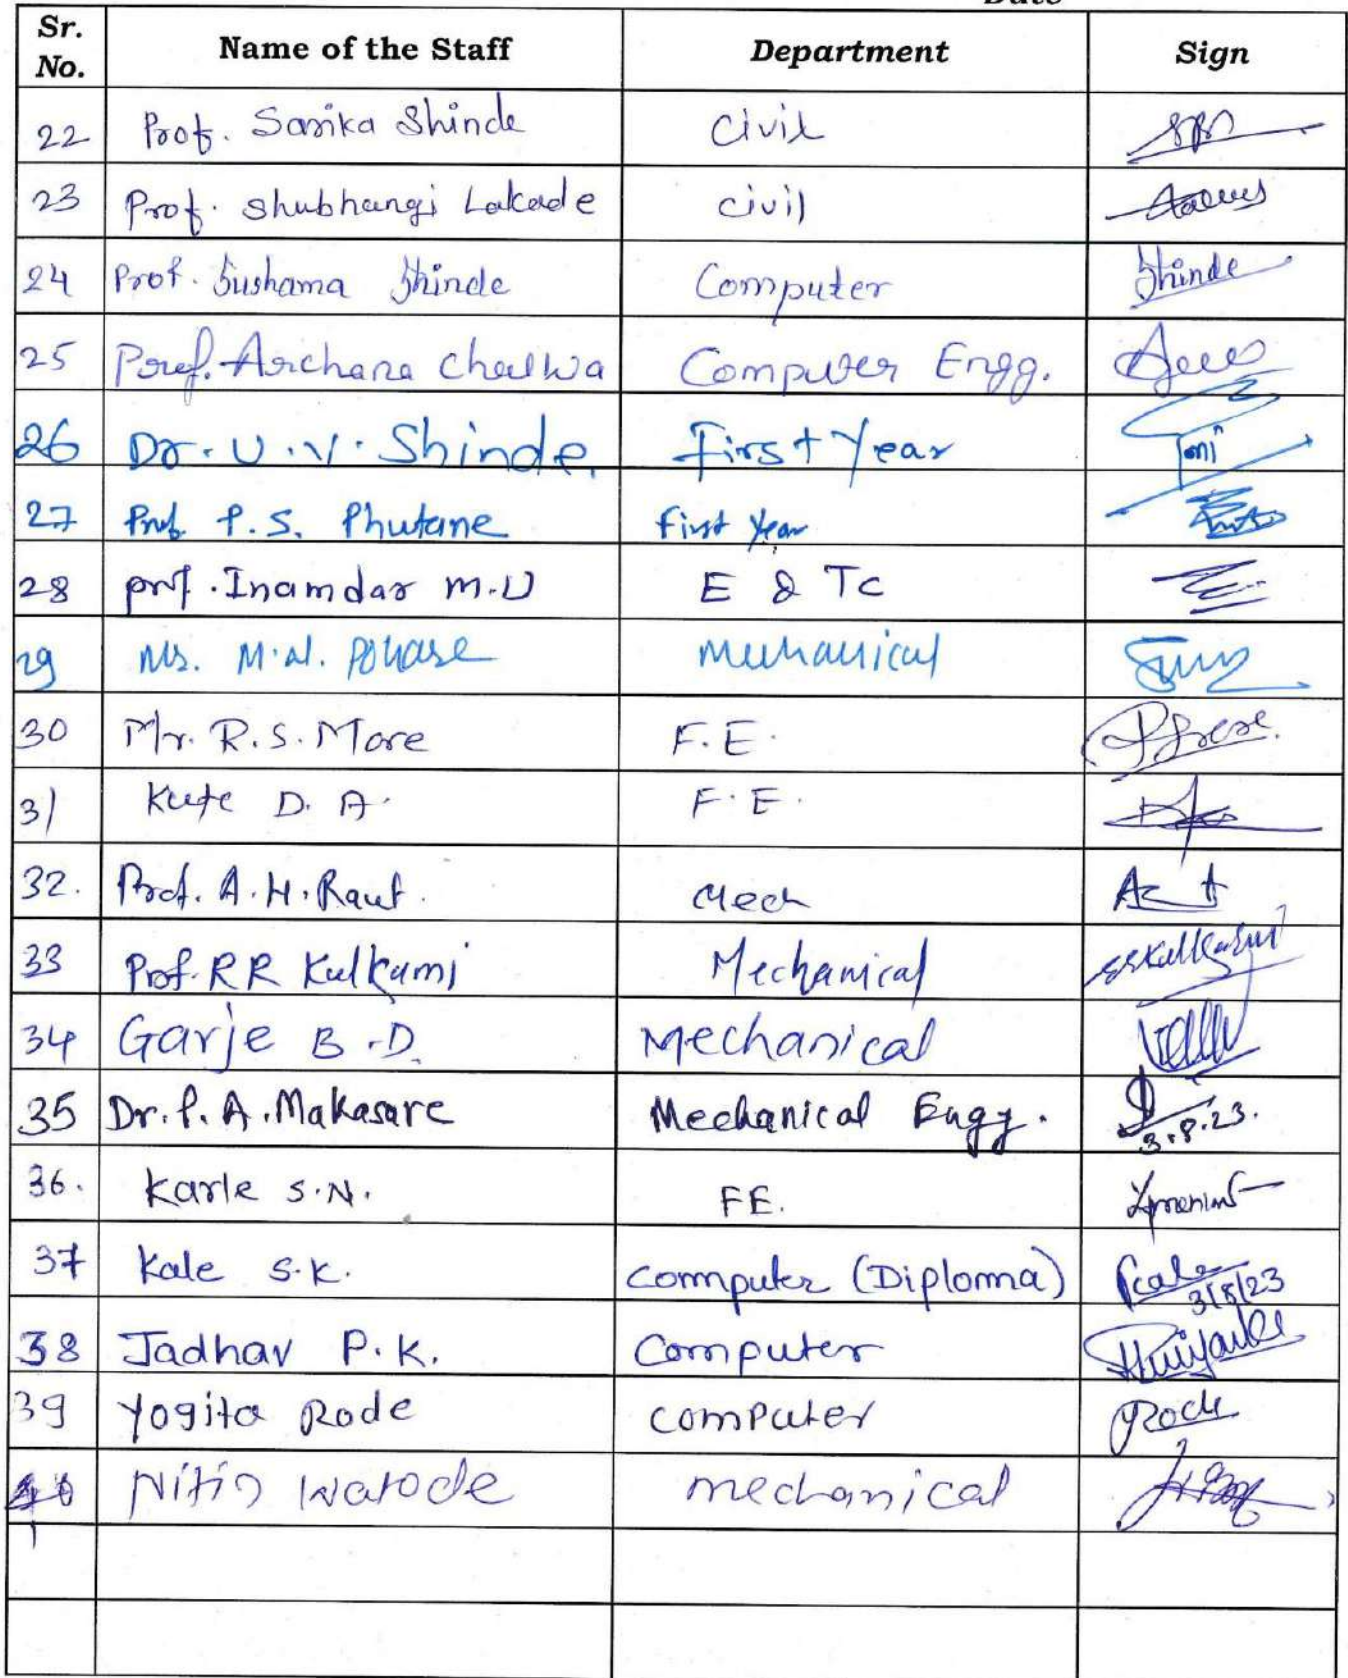 Date
Sr. No. Name of the Staff Department Sign
22 Prof. Sarika Shinde Civil
23 Prof. Shubhangi Lakade civil
24 Prof. Sushama Shinde Computer Shinde
25 Prof. Archana Computer Engg.
26 Dr. U.V. Shinde First Year
27 Prof. P.S. Phutane First Year
28 prof. Inamdar M.U E & TC
29 Ms. M.N. Pohase Mechanical
30 Mr. R.S. More F.E.
31 Kute D. A. F.E.
32. Prof. A.H. Raut. Mech
33 Prof. RR Kulkarni Mechanical
34 Garje B.D. Mechanical
35 Dr. P. A. Makasare Mechanical Engg. 3.8.23.
36. Karle S.N. FE.
37 Kale S.K. Computer (Diploma) Kale 3/8/23
38 Jadhav P.K. Computer
39 Yogita Rode computer Rode
40 Nitin Watode mechanical